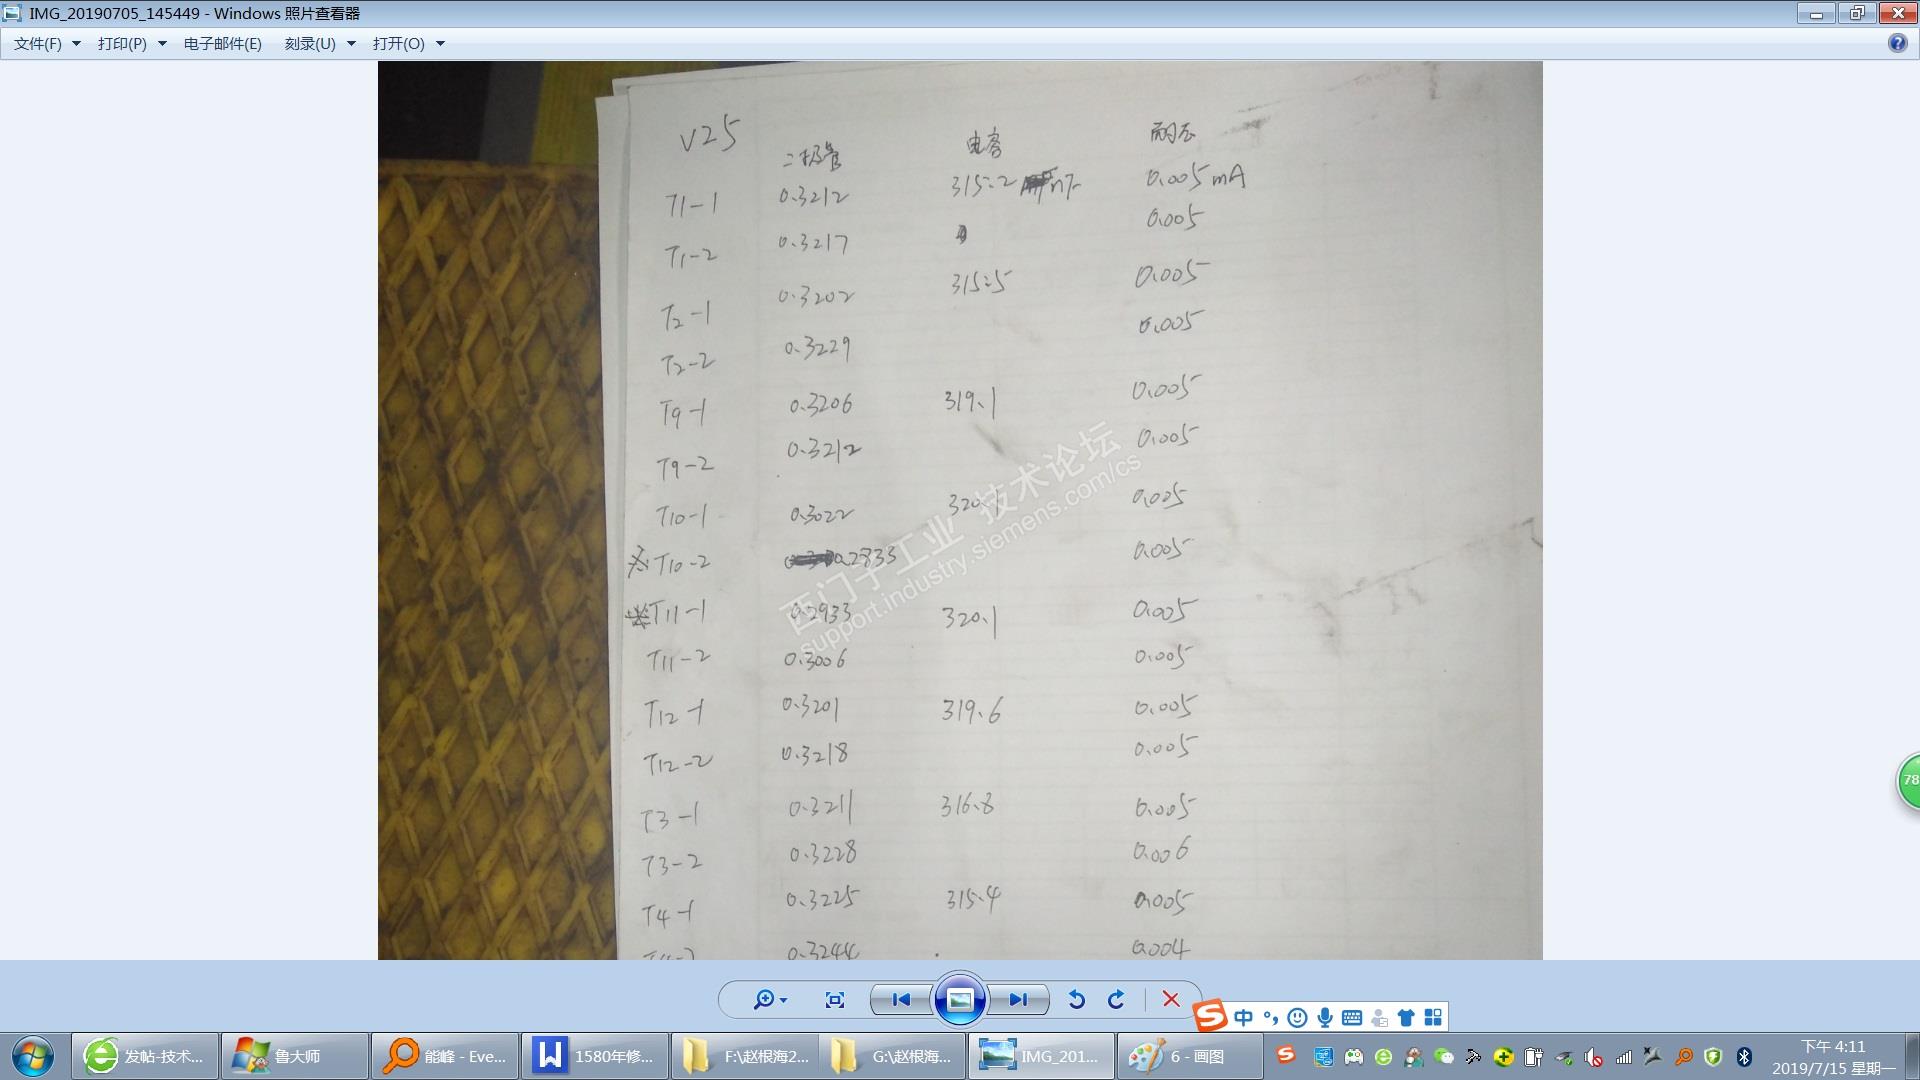 IMG_20190705_145449 - Windows 照片查看器
文件(F) 打印(P) 电子邮件(E) 刻录(U) 打开(O)
V25
二极管 电容 耐压
T1-1 0.3212 315.2 nF 0.005mA
T1-2 0.3217 0.005
T2-1 0.3202 315.5 0.005
T2-2 0.3229 0.005
T9-1 0.3206 319.1 0.005
T9-2 0.3212 0.005
T10-1 0.3022 320.1 0.005
T10-2 0.2833 0.005
T11-1 0.2933 320.1 0.005
T11-2 0.3006 0.005
T12-1 0.3201 319.6 0.005
T12-2 0.3218 0.005
T3-1 0.3211 316.8 0.005
T3-2 0.3228 0.006
T4-1 0.3225 315.4 0.005
T4-2 0.3244 0.004
西门子工业 技术论坛
support.industry.siemens.com/cs
78
中
发帖-技术... 鲁大师 能峰 - Eve... 1580年修... F:\赵根海2... G:\赵根海... IMG_201... 6 - 画图
下午 4:11
2019/7/15 星期一